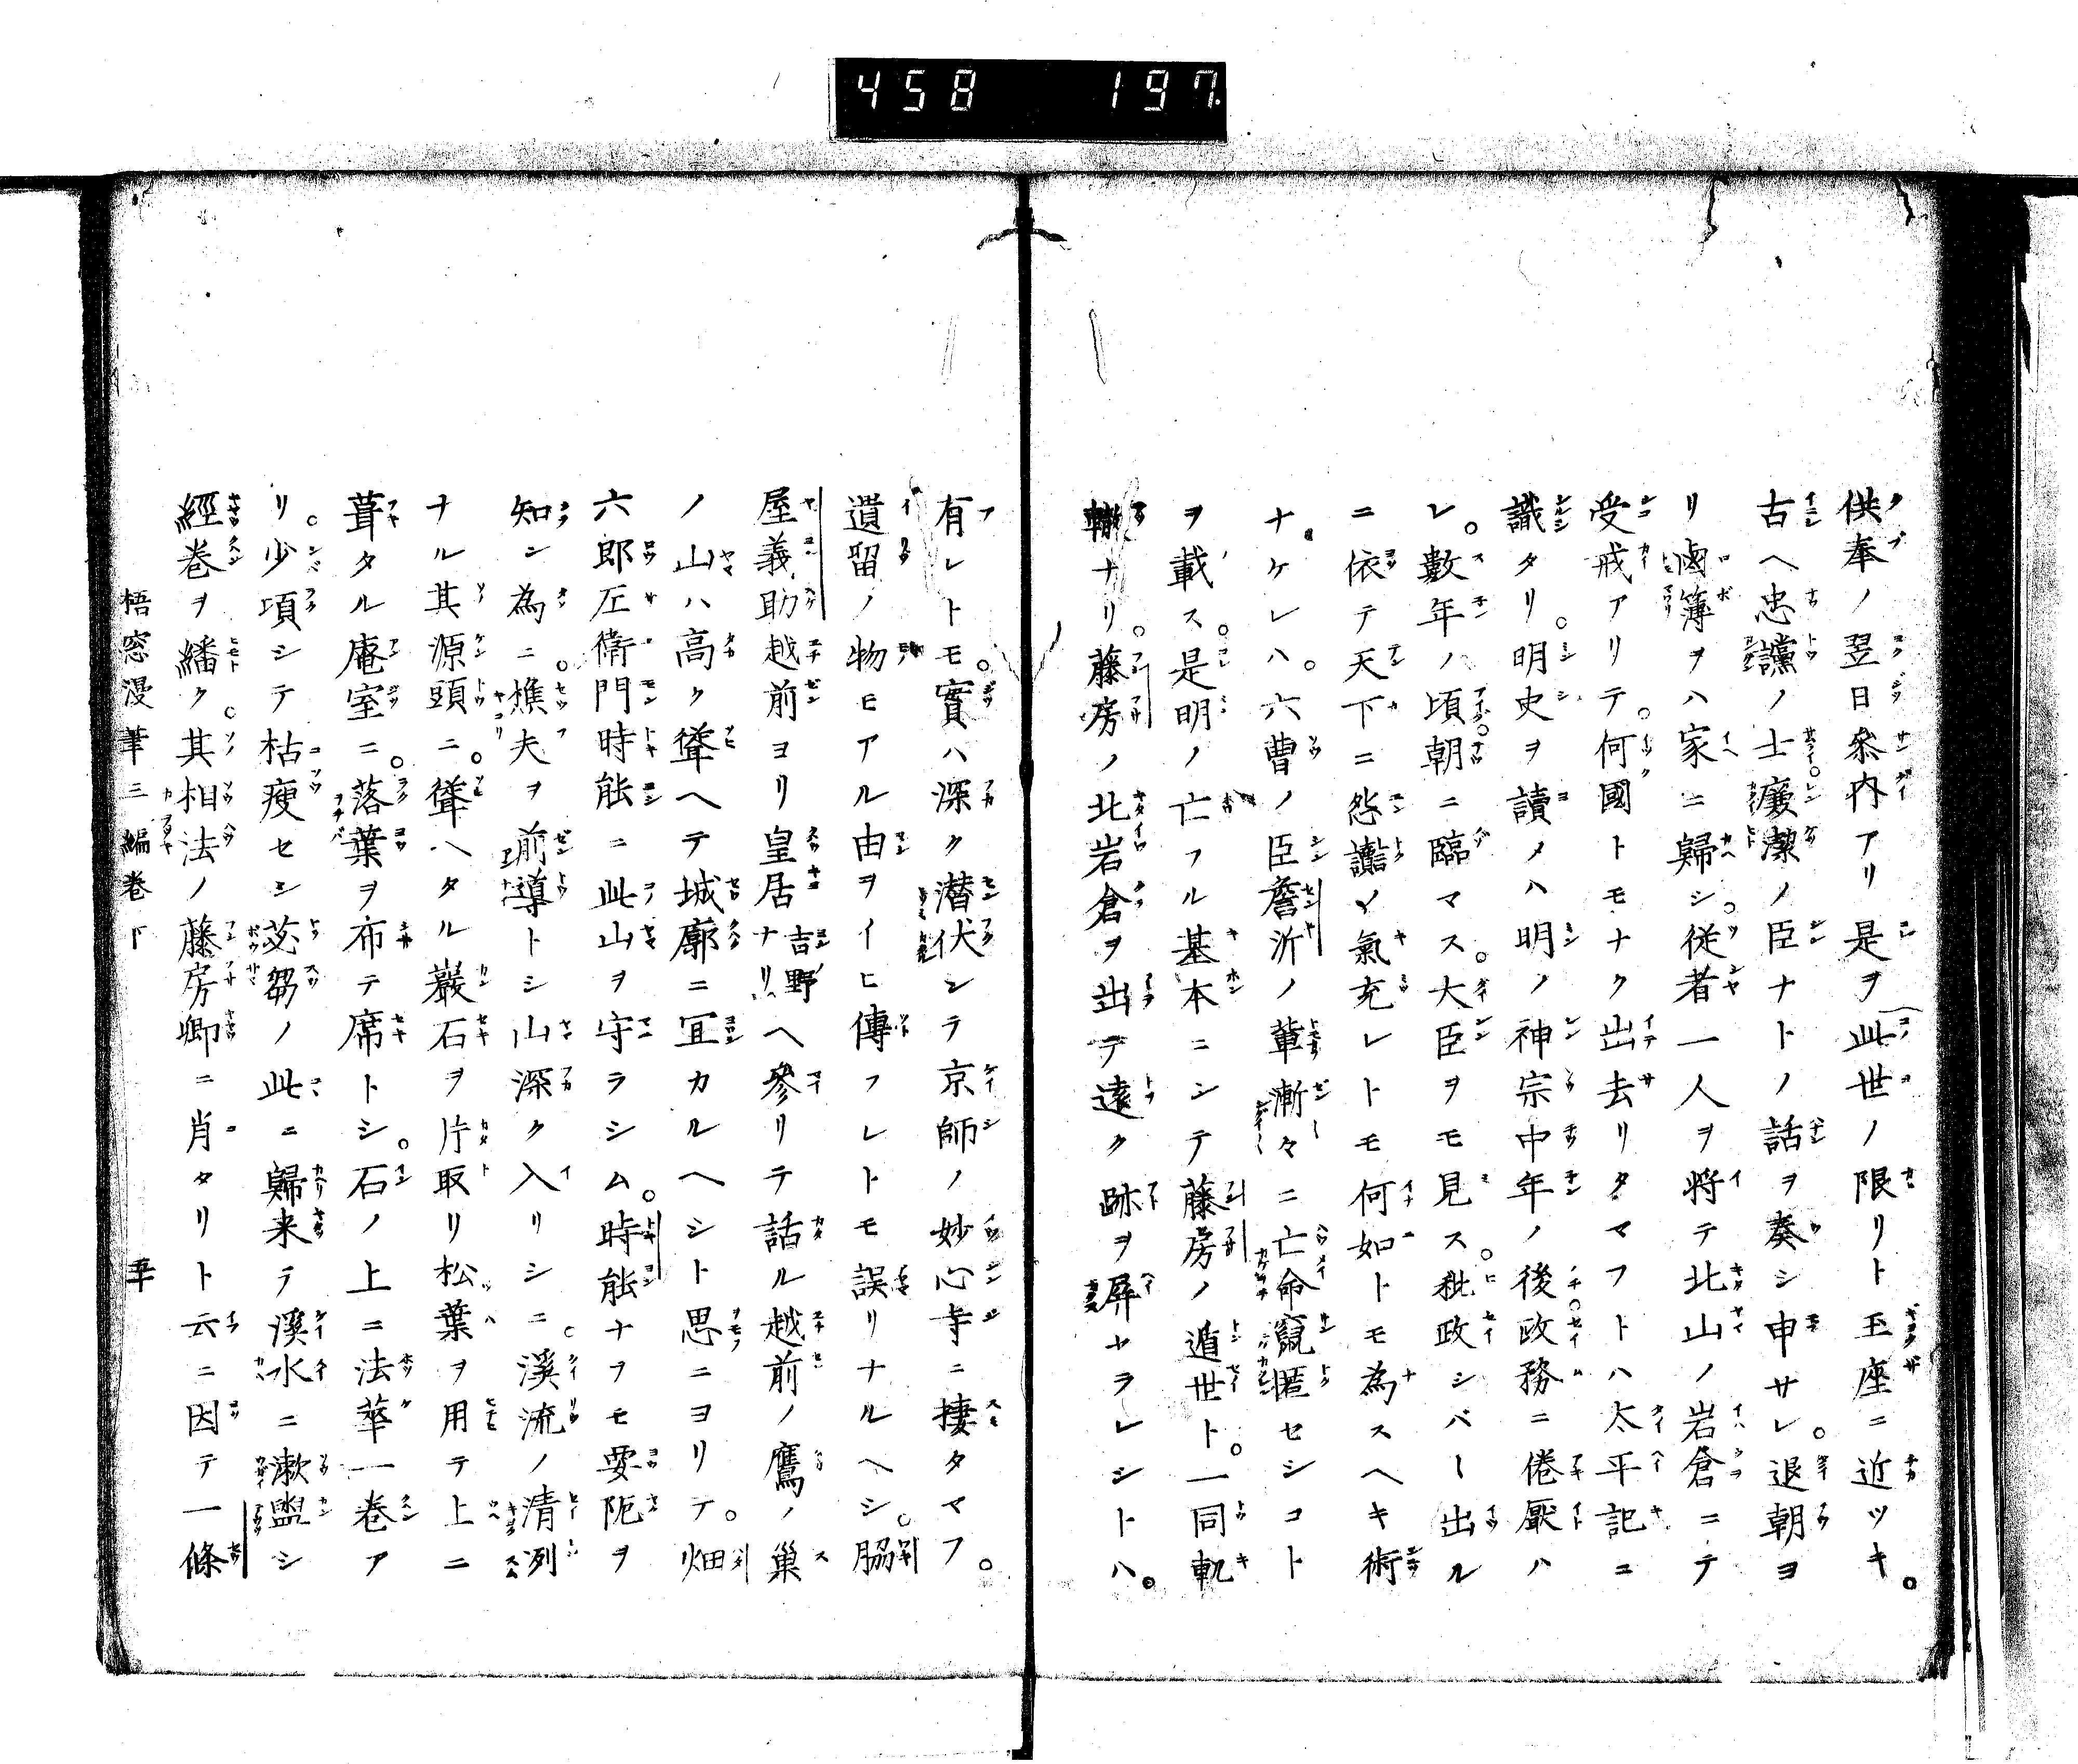 458 197
供奉ノ翌日参内アリ是ヲ此世ノ限リト玉座ニ近ツキ。
古ヘ忠讜ノ士廉潔ノ臣ナトノ話ヲ奏シ申サレ。退朝ヨ
リ鹵簿ヲハ家ニ歸シ。従者一人ヲ将テ北山ノ岩倉ニテ
受戒アリテ。何國トモナク出去リタマフトハ太平記ニ
識タリ。明史ヲ讀メハ明ノ神宗中年ノ後政務ニ倦厭ハ
レ。數年ノ頃朝ニ臨マス。大臣ヲモ見ス。秕政シバ〱出ル
ニ依テ天下ニ怨讟ノ氣充レトモ何如トモ為スヘキ術
ナケレハ。六曹ノ臣詹沂ノ輩漸々ニ亡命竄匿セシコト
ヲ載ス。是明ノ亡フル基本ニシテ藤房ノ遁世ト。一同軌
轍ナリ。藤房ノ北岩倉ヲ出テ遠ク跡ヲ屏ヤラレシトハ。
有レトモ。實ハ深ク潜伏シテ京師ノ妙心寺ニ棲タマフ。
遺留ノ物モアル由ヲイヒ傳フレトモ誤リナルヘシ。脇
屋義助越前ヨリ皇居吉野ナリヘ參リテ話ル越前ノ鷹ノ巣
ノ山ハ高ク聳ヘテ城廓ニ宜カルヘシト思ニヨリテ。畑
六郎左衛門時能ニ此山ヲ守ラシム。時能ナヲモ要阨ヲ
知ン為ニ。樵夫ヲ前導トシ山深ク入リシニ。溪流ノ清洌
ナル其源頭ニ。聳ヘタル巖石ヲ片取リ松葉ヲ用テ上ニ
葺タル庵室ニ。落葉ヲ布テ席トシ。石ノ上ニ法華一巻ア
リ。少項シテ枯痩セシ苾芻ノ此ニ歸来テ溪水ニ漱盥シ
經巻ヲ繙ク。其相法ノ藤房卿ニ肖タリト云ニ因テ一條
梧窓漫筆三編巻下